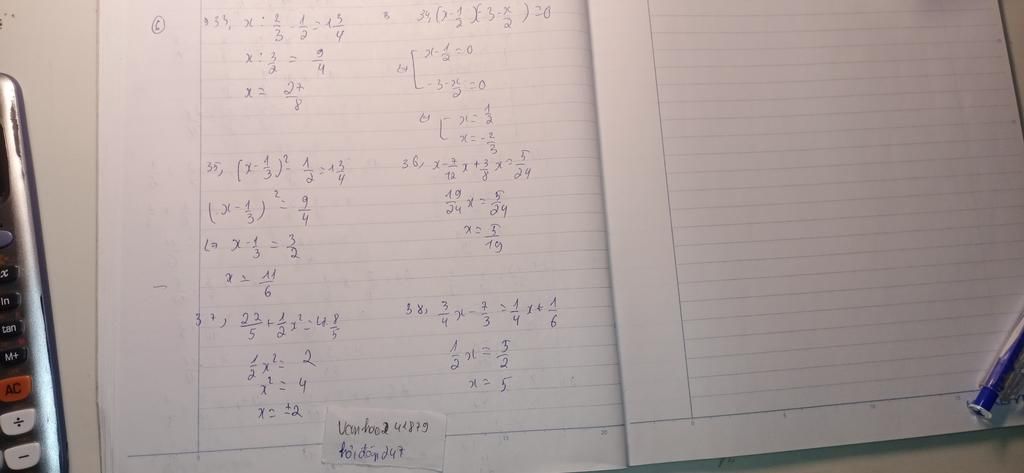 6
33, x : 2/3 - 1/2 = 1 3/4
x : 3/2 = 9/4
x = 27/8
34, (x - 1/2)(-3 - x/2) = 0
⇔ [ x - 1/2 = 0
-3 - x/2 = 0
⇔ [ x = 1/2
x = -2/3
35, (x - 1/3)² - 1/2 = 1 3/4
(x - 1/3)² = 9/4
⇔ x - 1/3 = 3/2
x = 11/6
36, x - 7/12 x + 3/8 x = 5/24
19/24 x = 5/24
x = 5/19
37, 22/5 + 1/2 x² =
1/2 x² = 2
x² = 4
x = ±2
38, 3/4 x - 7/3 = 1/4 x + 1/6
1/2 x = 5/2
x = 5
41879
hỏi đáp 247
x
ln
tan
M+
AC
÷
−